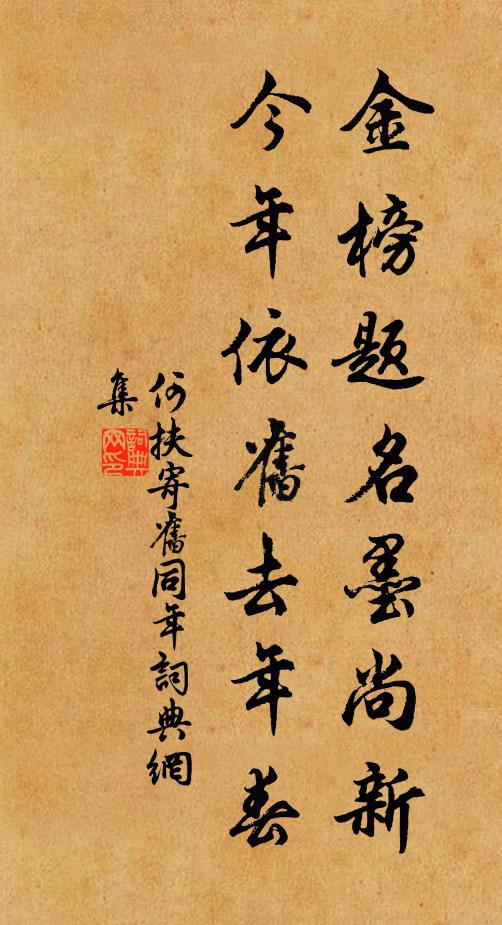 金榜題名墨尚新
今年依舊去年春
何扶寄舊同年詞典網
集
詞典網印